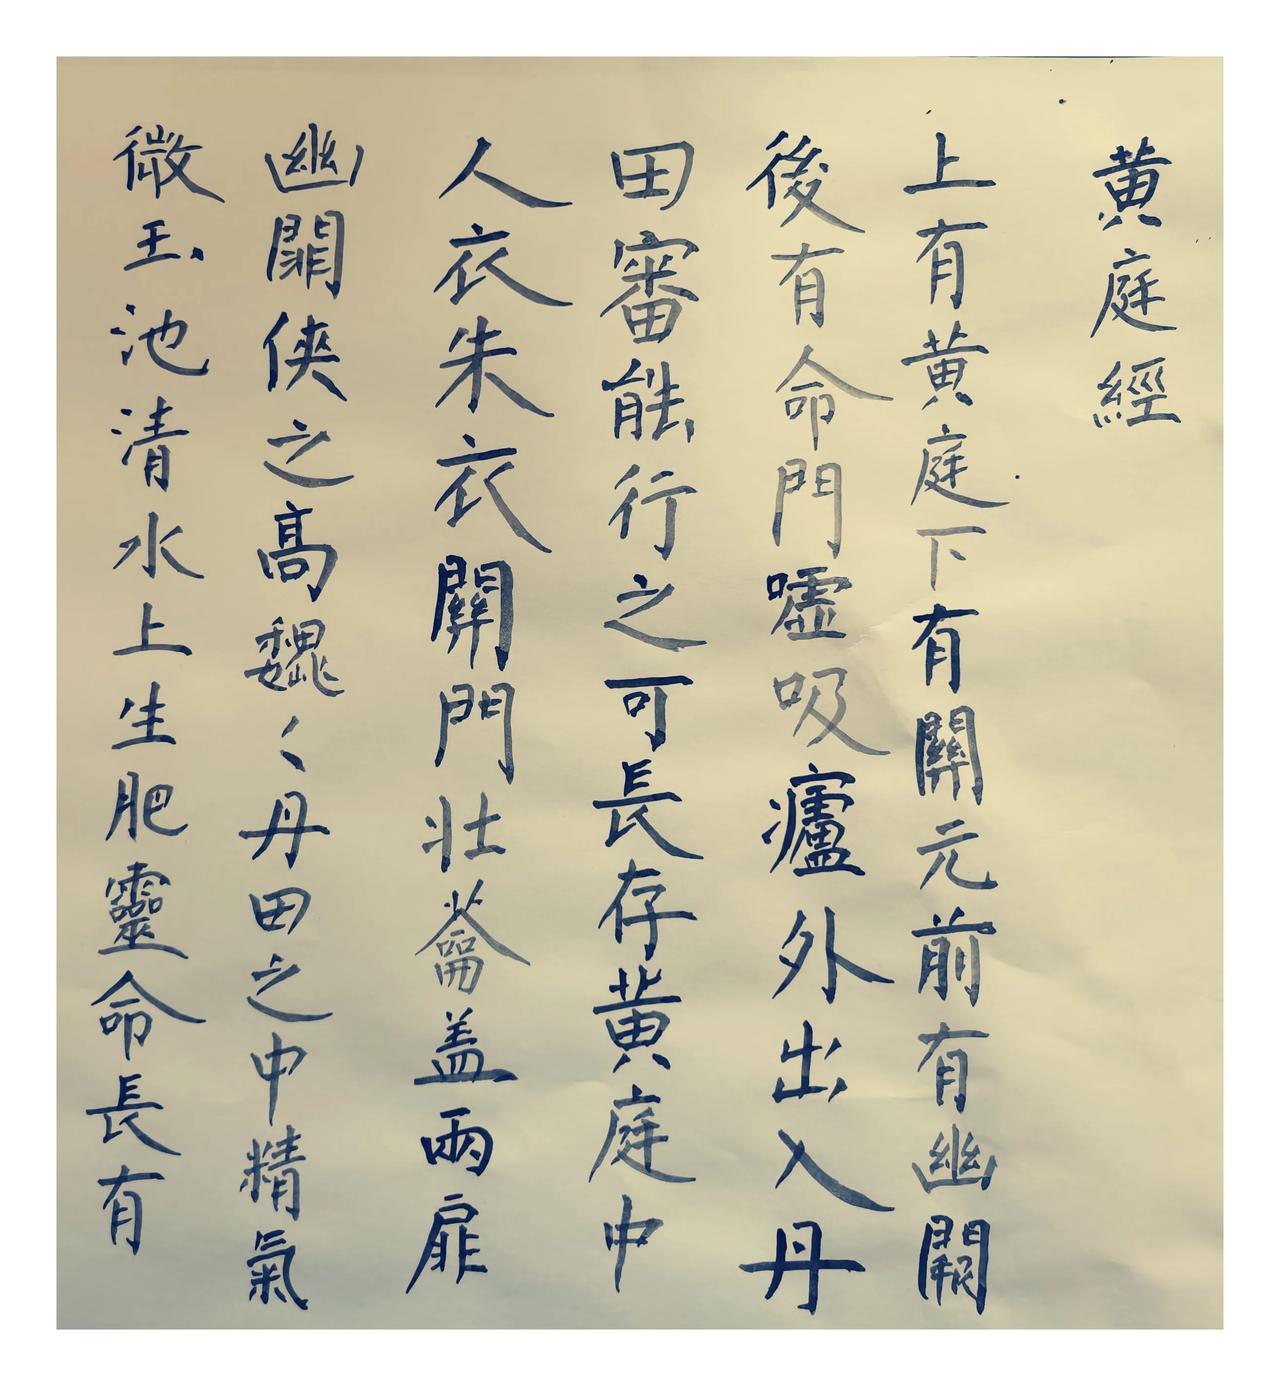 黄庭經
上有黄庭下有關元前有幽闕
後有命門嘘吸廬外出入丹
田審能行之可長存黄庭中
人衣朱衣關門壯蘥盖兩扉
幽闗侠之高魏々丹田之中精氣
微玉池清水上生肥靈命長有